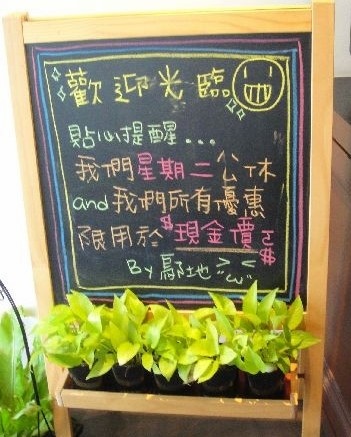 歡迎光臨
貼心提醒...
我們星期二公休
and我們所有優惠
限用於$現金價$
By 鄔地 >ω<